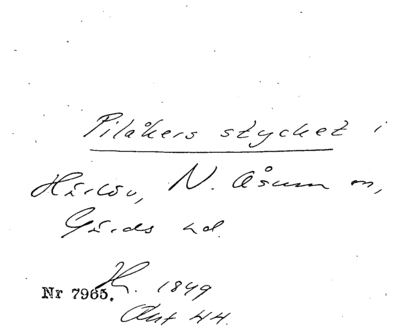 Pilåkers stycket i
Härlöv, N. Åsum sn,
Gärds hd.
Nr 7965. H. 1849
Akt 44.